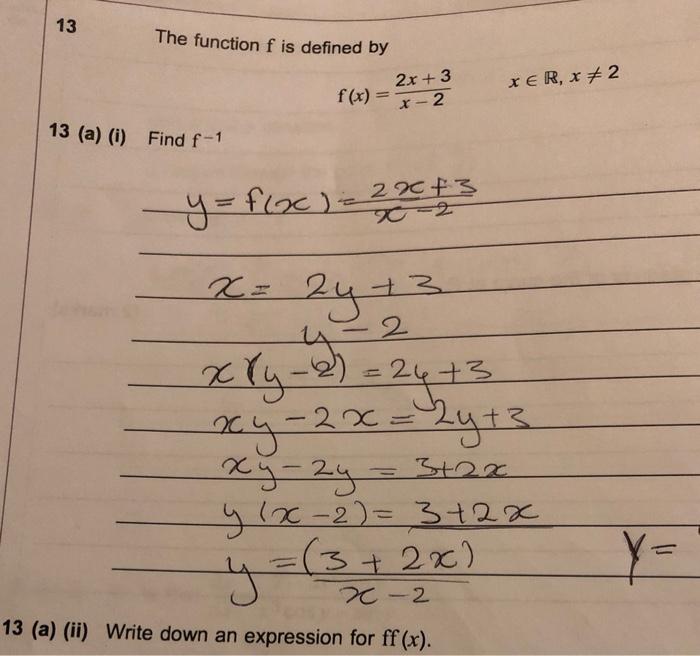 13 The function f is defined by
f(x) = (2x + 3)/(x − 2) x ∈ ℝ, x ≠ 2
13 (a) (i) Find f⁻¹
y = f(x) = (2x+3)/(x−2)
x = (2y+3)/(y−2)
x(y−2) = 2y+3
xy−2x = 2y+3
xy−2y = 3+2x
y(x−2) = 3+2x
y = (3+2x)/(x−2) y =
13 (a) (ii) Write down an expression for ff(x).